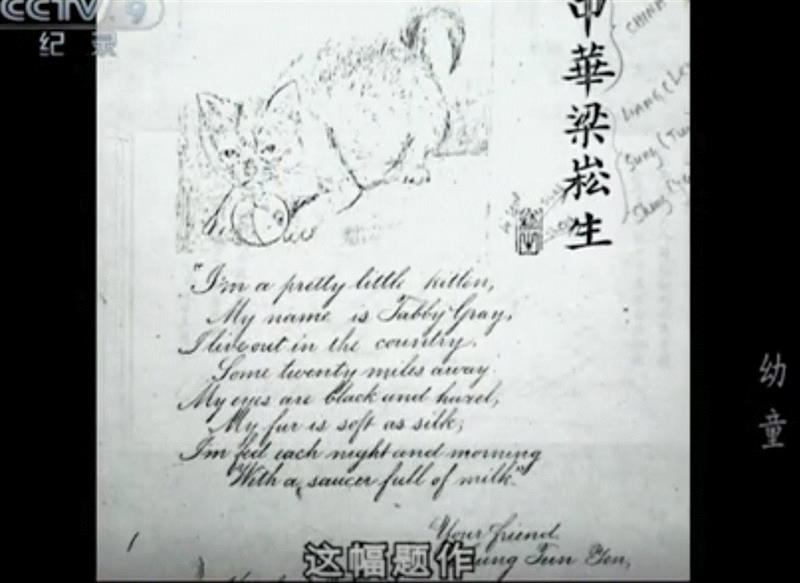 CCTV 9
纪录
中華梁崧生
CHINA
LIANG
Sung
"I'm a pretty little kitten,
My name is Tabby Gray,
I live out in the country,
Some twenty miles away.
My eyes are black and hazel,
My fur is soft as silk;
I'm fed each night and morning
With a saucer full of milk."
Your friend
Yen,
幼童
这幅题作